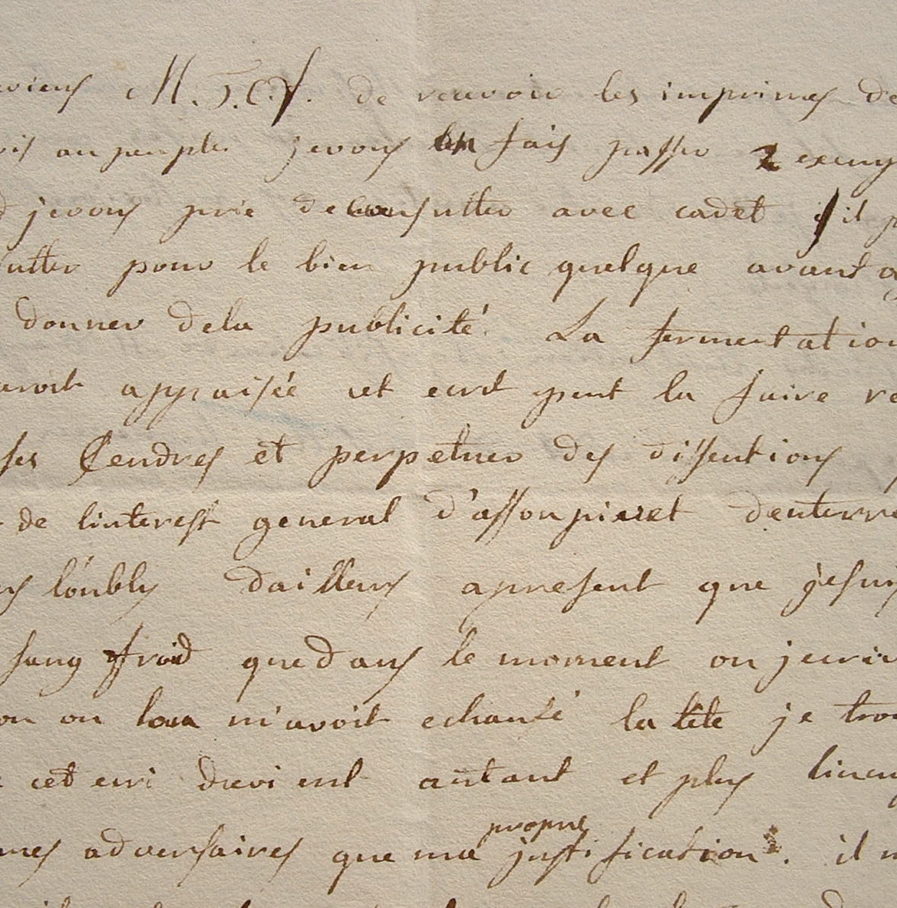 viens M.T.C.f. de recevoir les imprimes de
is au peuple jevous en fais passer 2 exemp
jevous prie deconsulter avec cadet s'il p
sulter pour le bien public quelque avanta
donner dela publicité. La fermentation
aroit appaisée cet ecrit peut la faire re
ses Cendres et perpetuer des dissentions
de linterest general d'assoupir et denterre
s l'oubly dailleurs apresent que jesuis
sang froid quedans le moment ou jecriv
on on m'avoit echaufé la tête je trou
cet ecri devient autant et plus
mes adversaires que ma propre justification. il